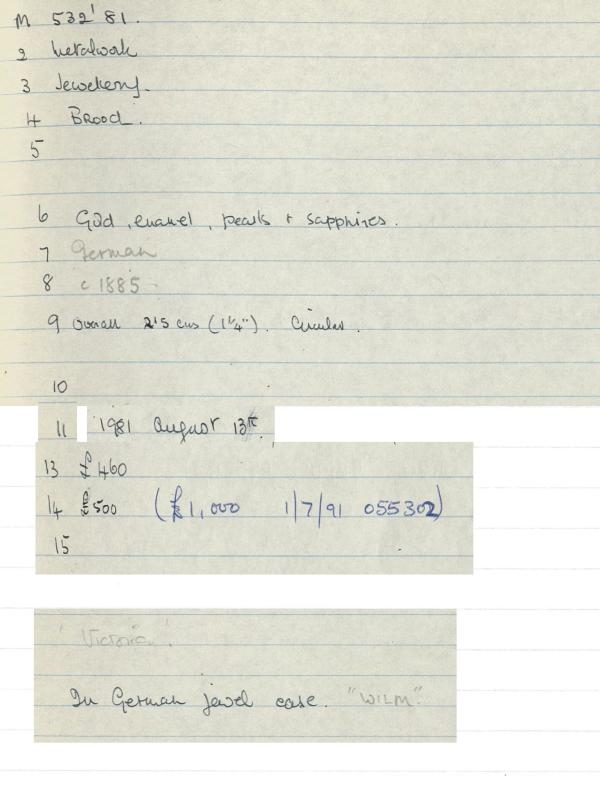 M 532'81.
2 Metalwork
3 Jewellery.
4 Brooch.
5
6 Gold, enamel, pearls + sapphires.
7 German
8 c 1885
9 Overall 2·5 cms (1 1/4"). Circular.
10
11 1981 August 13th.
13 £460
14 £500 (£1,000 1/7/91 055302)
15
'Victoria'.
In German jewel case. "WILM".